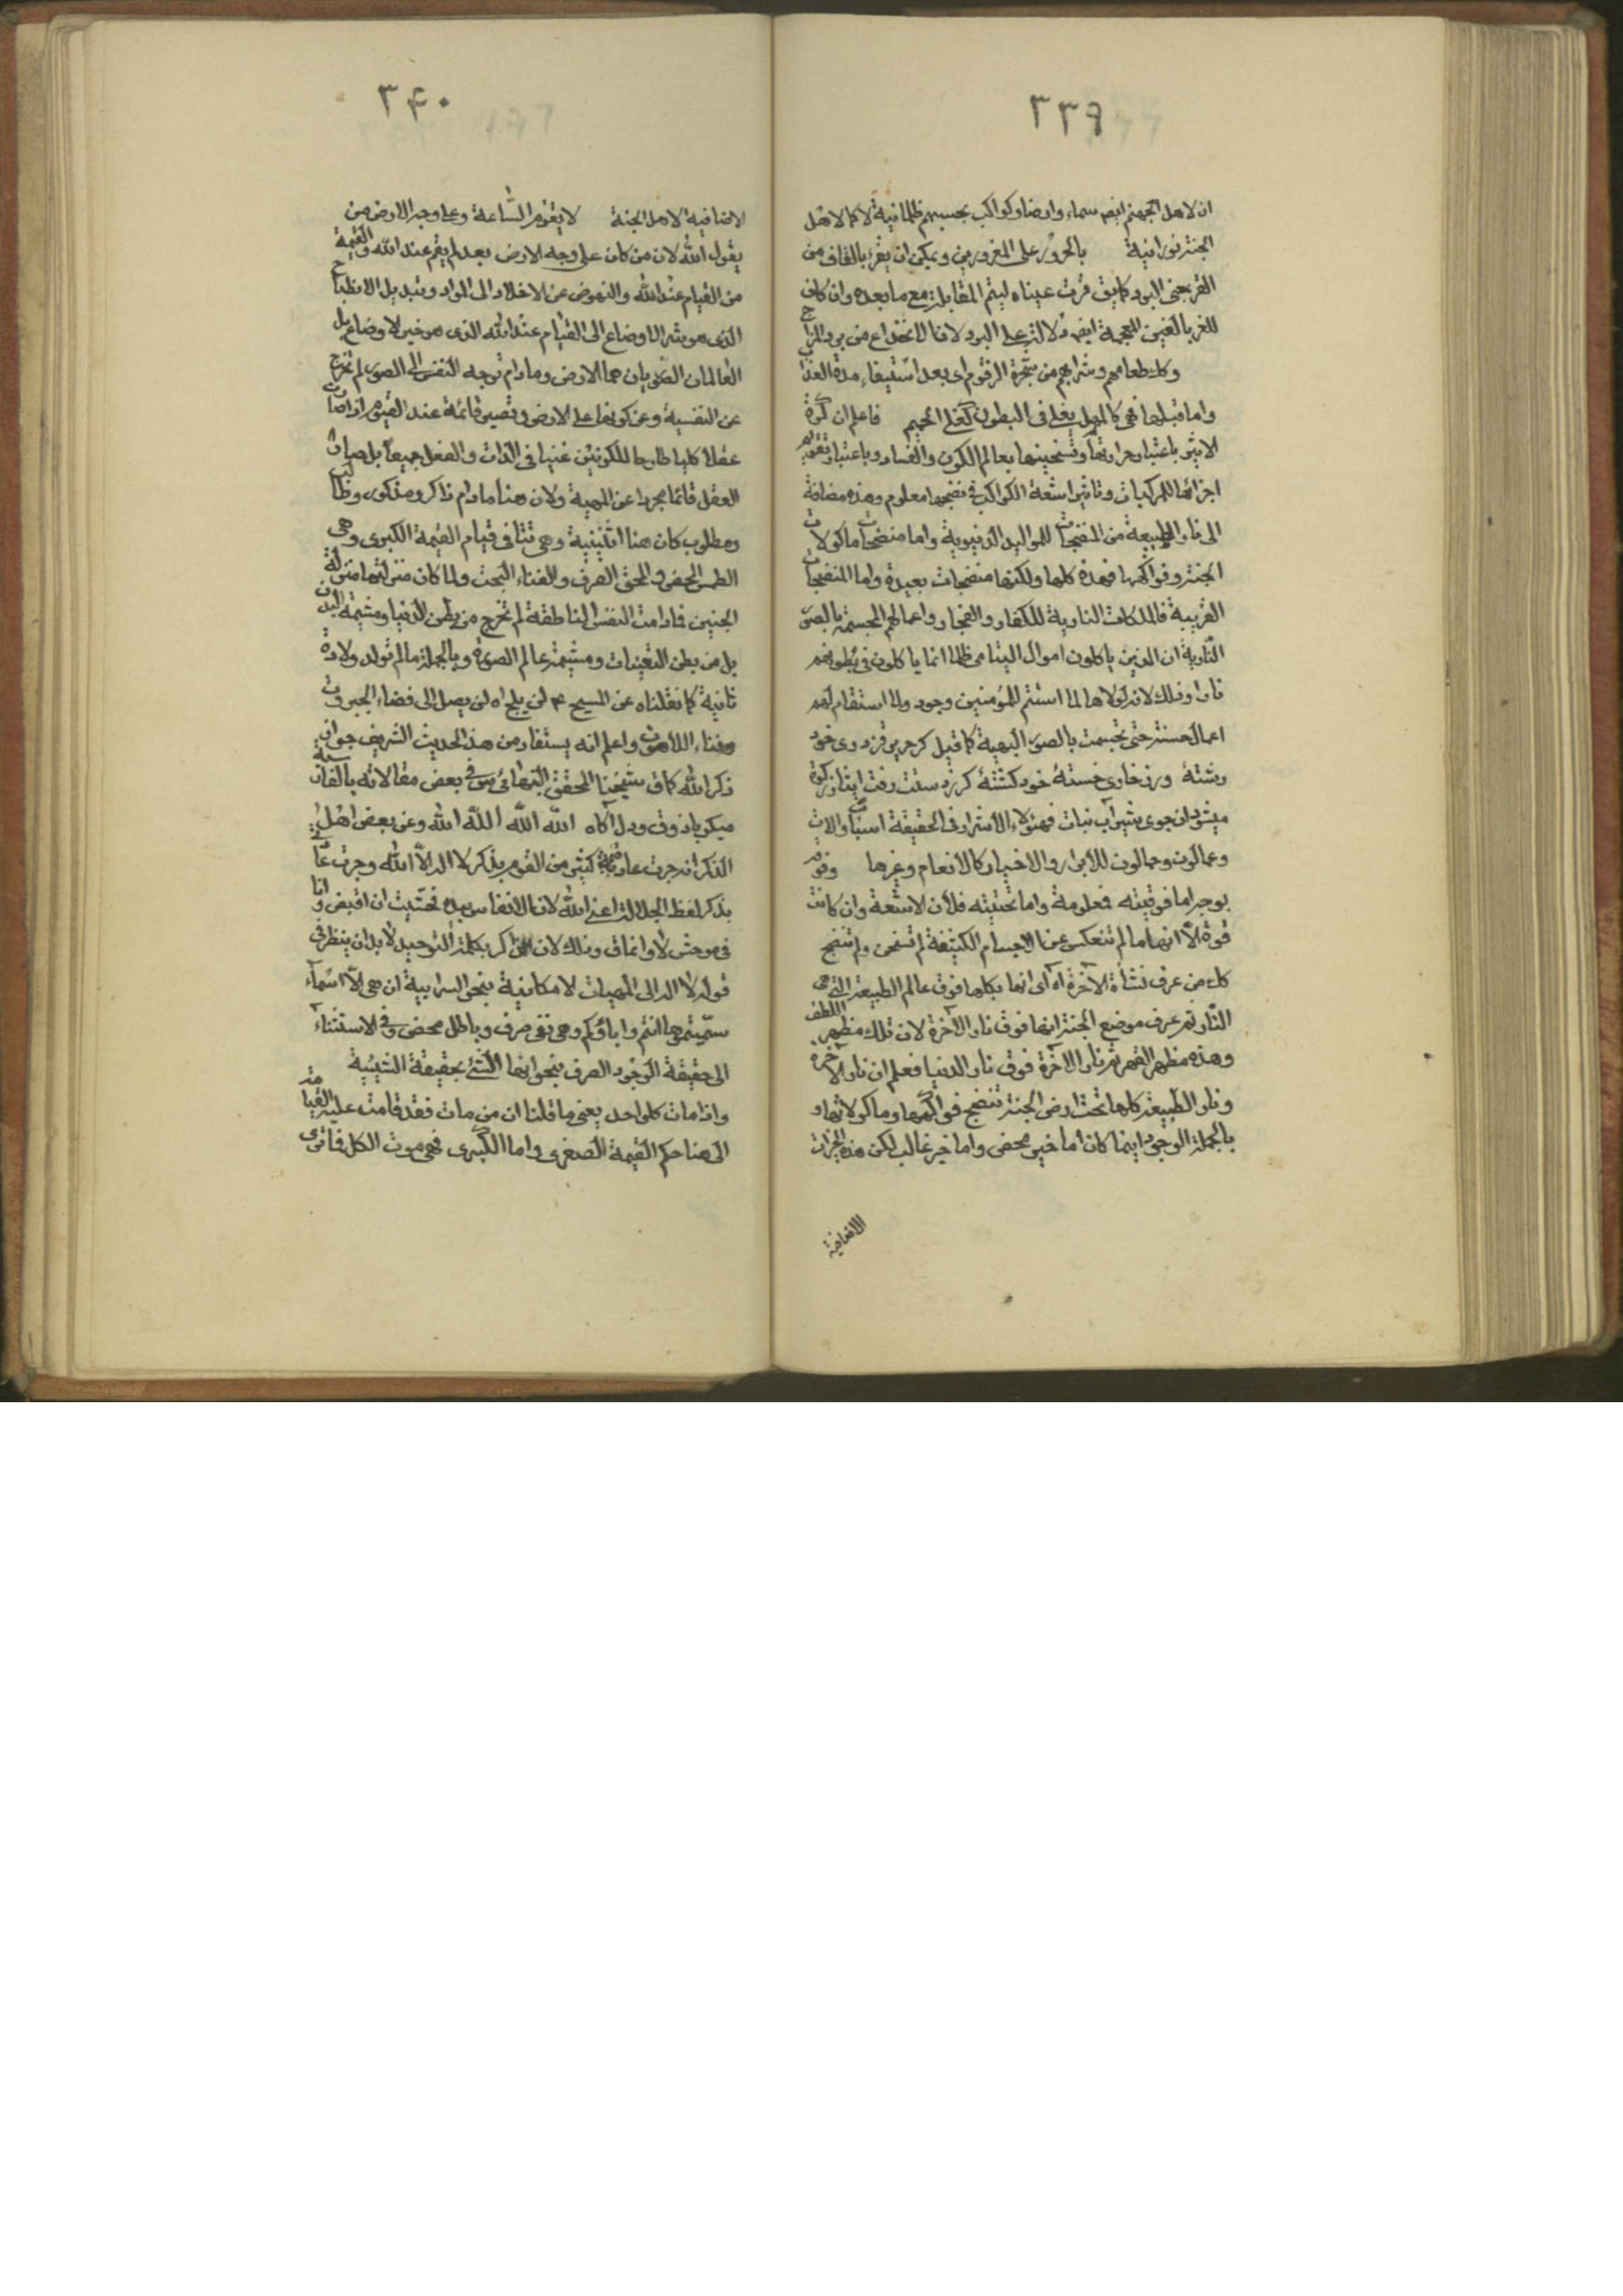 ٣٣٩
ان لاهل الجهنم ايضا سماء وارضا وكواكب بحسبهم ظلمانية لا كما لاهل
الجنة نورانية بالحرور على المغرورين ويمكن ان يقرء بالقاف من
القر بمعنى البرد كما يق قرت عيناه ليتم المقابلة مع ما بعده وان كان
للغر بالغين المعجمة ايضا دلالة على البرد لان الانخداع من برد المزاج
وكك طعامهم وشرابهم من شجرة الزقوم اى بعد استيفاء مدة العذاب
واما قبلها فهى كالمهل يغلى فى البطون كغلى الحميم فاعلم ان كرة
الاثير باعتبار حرارتها وتسخينها بعالم الكون والفساد وباعتبار تقويم
اجزائها للمركبات وتاثير اشعة الكواكب فى نضجها معلوم وهذه مضافة
الى نار الطبيعة من المنضجات للمواليد الدنيوية واما منضجات ماكولات
الجنة وفواكهها فهذه كلها ولكنها منضجات بعيدة واما المنضجات
القريبة فالملكات النارية للكفار والفجار واعمالهم المجسمة بالصور
النارية ان الذين ياكلون اموال اليتامى ظلما انما ياكلون فى بطونهم
نارا وذلك لانه لولاها لما استتم للمؤمنين وجود ولما استقام لهم
اعمال حسنة حتى تجسمت بالصور البهية كما قيل
رشتة ورز خارى خستة خود كشتة
ميشود ان جوى شير آب نبات فهؤلاء الاشرار فى الحقيقة اسباب والات
وعمالون وحمالون للابرار والاخيار كالانعام وغيرها
بوجه اما فوقيته فمعلومة واما تحتيته فلان الاشعة وان كانت
قوة الا انها ما لم تنعكس عن الاجسام الكثيفة لم تسخن ولم تنضج
كك من عرف نشأة الآخرة اه اى انها بكلها فوق عالم الطبيعة التى هى
النار ثم عرف موضع الجنة انها فوق نار الآخرة لان تلك مظهر اللطف
وهذه مظهر القهر ثم نار الآخرة فوق نار الدنيا فعلم ان نار الآخرة
ونار الطبيعة كلها تحت ارض الجنة تنضج فواكهها وماكولاتها و
بالجملة الوجود اينما كان اما خير محض واما خير غالب لكن هذه الخيرات
الاضافية
٣٤٠
الاضافية لاهل الجنة لا يقوم الساعة وعلى وجه الارض من
يقول الله لان من كان على وجه الارض بعد لم يقم عند الله والقيمة
من القيام عند الله والنهوض عن الاخلاد الى المواد وتبديل الانطباع
الذى هو شر الاوضاع الى القيام عند الله الذى هو خير الاوضاع بل
العالمان الصوريان هما الارض وما دام توجه النفس الى الصور لم تخرج
عن النفسية وعن كونها على الارض وتصير قائمة عند القيوم اذا صارت
عقلا كليا طارحا للكونين غنيا فى الذات والفعل جميعا بل صارت
العقل قائما مجردا عن المهية ولان هنا ما دام ذاكر ومذكور وطالب
ومطلوب كان هنا اثنينية وهى تنافى قيام القيمة الكبرى وهى
الطمس المحض والمحق الصرف والفناء البحت ولما كان منزلتها منزلة
الجنين فما دامت النفس الناطقة لم تخرج من بطن الدنيا ومشيمة البدن
بل من بطن التعينات ومشيمة عالم الصورة وبالجملة ما لم تولد ولادة
ثانية كما نقلناه عن المسيح ع لن يلج اه لن يصل الى فضاء الجبروت
وفناء اللاهوت واعلم انه يستفاد من هذا الحديث الشريف جواز
ذكر الله كما ق شيخنا المحقق البهائى س فى بعض مقالاته بالفارسية
ميكو با ذوق ودل آكاه الله الله الله الله وعن بعض اهل
الذكر انه جرت عادة كثير من القوم بذكر لا اله الا الله وجرت عادتى
بذكر لفظ الجلالة اعنى الله لان الانفاس بيده فخشيت ان اقبض وانا
فى موحش لا وانما ق ذلك لان الذاكر بكلمة التوحيد لا بد ان ينظر فى
قوله لا اله الى المهيات الامكانية بنحو السرابية ان هى الا اسماء
سميتموها انتم واباؤكم وهى نفى صرف وباطل محض وفى الاستثناء
الى حقيقة الوجود الصرف بنحو انها الشئ بحقيقة الشيئية
واذا مات كل واحد يعنى ما قلنا ان من مات فقد قامت عليه القيامة
الى هنا حكم القيمة الصغرى واما الكبرى فهى موت الكل فاترى